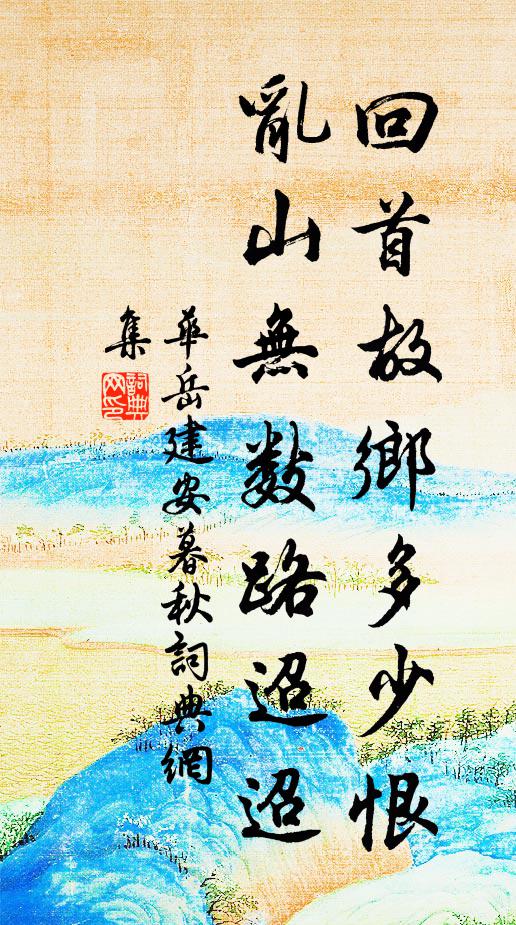 回首故鄉多少恨
亂山無數路迢迢
華岳建安暮秋詞典網
集
詞典
网印